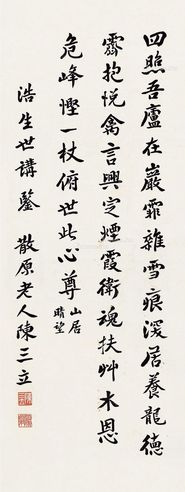 四照吾廬在巖霏雜雪痕深居養龍德
霽抱悅禽言興定煙霞衛魂扶艸木恩
危峰慳一杖俯世此心尊
山居
晴望
浩生世講鑒 散原老人陳三立